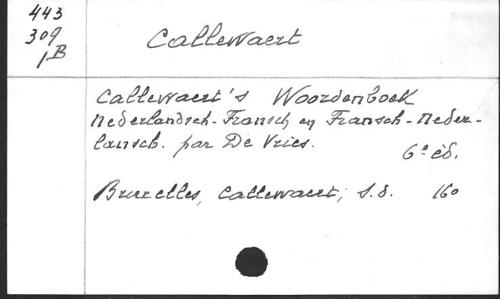 443
309
1B
Callewaert
Callewaert's Woordenboek
Nederlandsch-Fransch en Fransch-neder-
lansch. par De Vries.
6e éd.
Bruxelles, Callewaert, s.d. 16o